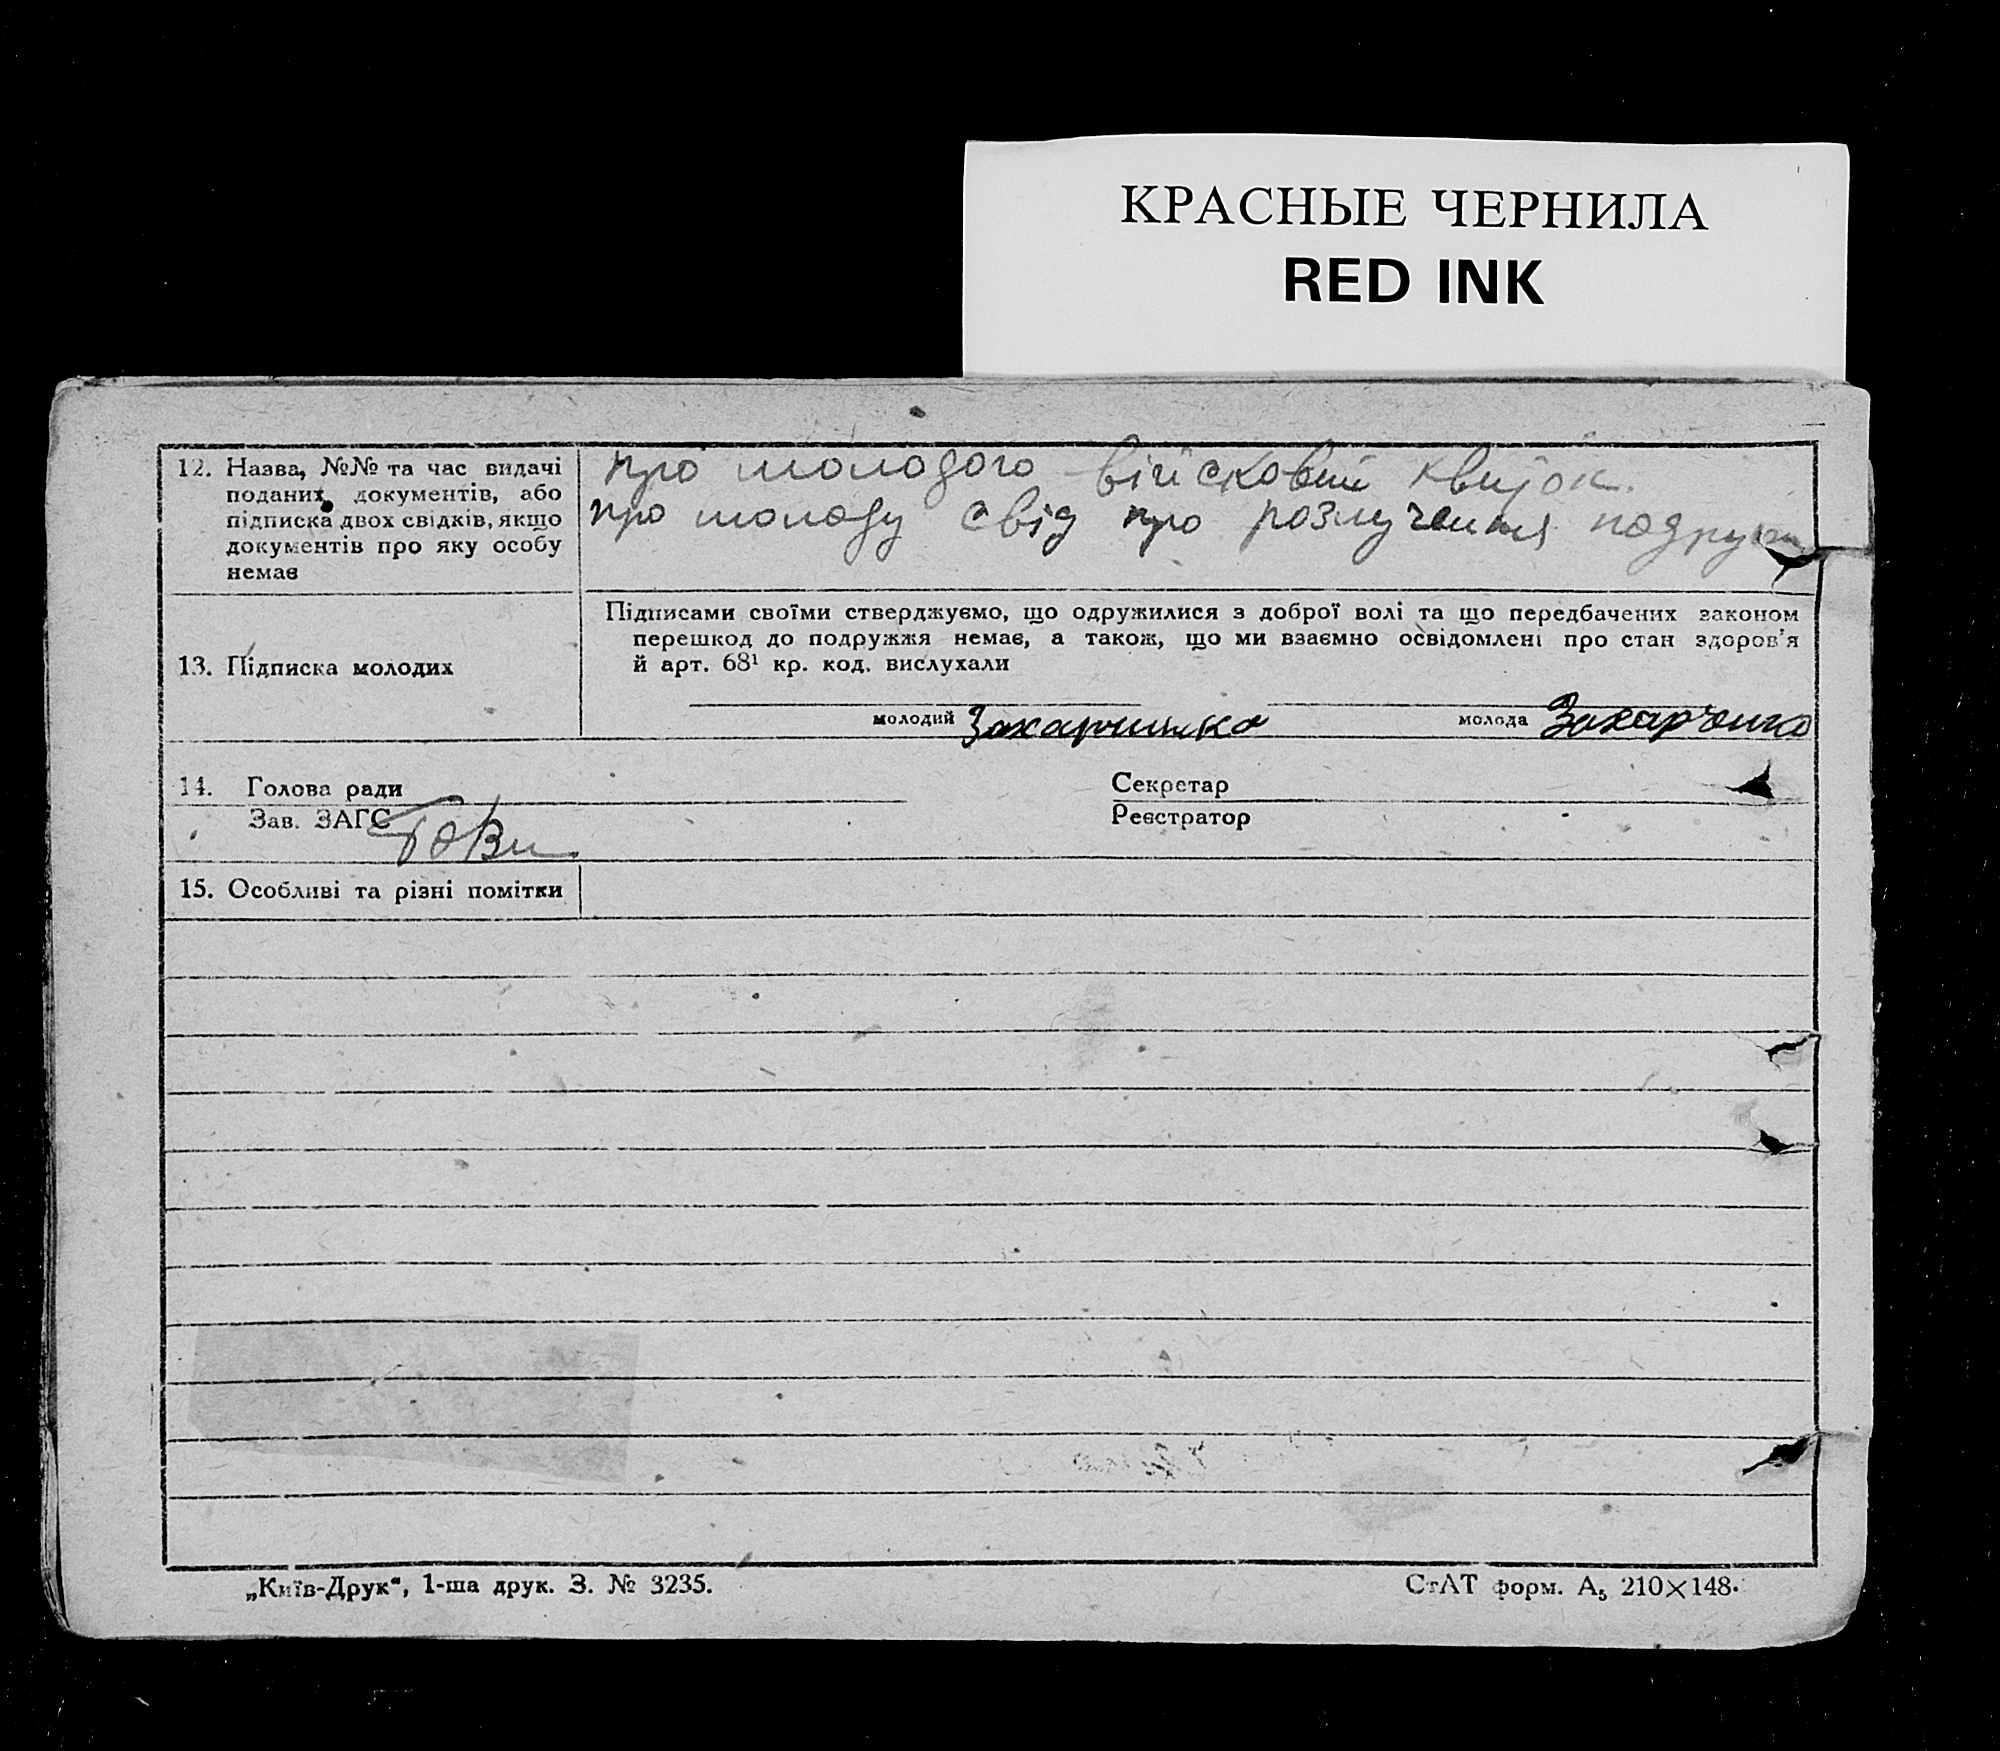 КРАСНЫЕ ЧЕРНИЛА
RED INK
12. Назва, №№ та час видачі
поданих документів, або
підписка двох свідків, якщо
документів про яку особу
немає
про молодого військовий квиток.
про молоду свід про розлучення подруж
13. Підписка молодих
Підписами своїми стверджуємо, що одружилися з доброї волі та що передбачених законом
перешкод до подружжя немає, а також, що ми взаємно освідомлені про стан здоров'я
й арт. 68¹ кр. код. вислухали
молодий Захарченко
молода Захарченко
14. Голова ради
Секретар
Зав. ЗАГС
Реєстратор
15. Особливі та різні помітки
„Київ-Друк“, 1-ша друк. З. № 3235.
СтАТ форм. А₅ 210×148.